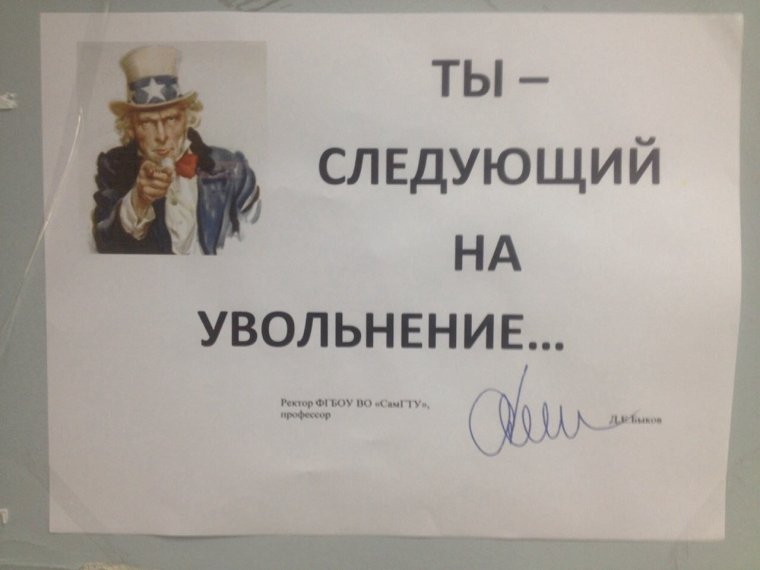 ТЫ –
СЛЕДУЮЩИЙ
НА
УВОЛЬНЕНИЕ...
Ректор ФГБОУ ВО «СамГТУ»,
профессор
Д.Е.Быков